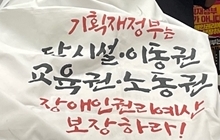 기획재정부는
탈시설·이동권
교육권·노동권
장애인권리예산
보장하라!